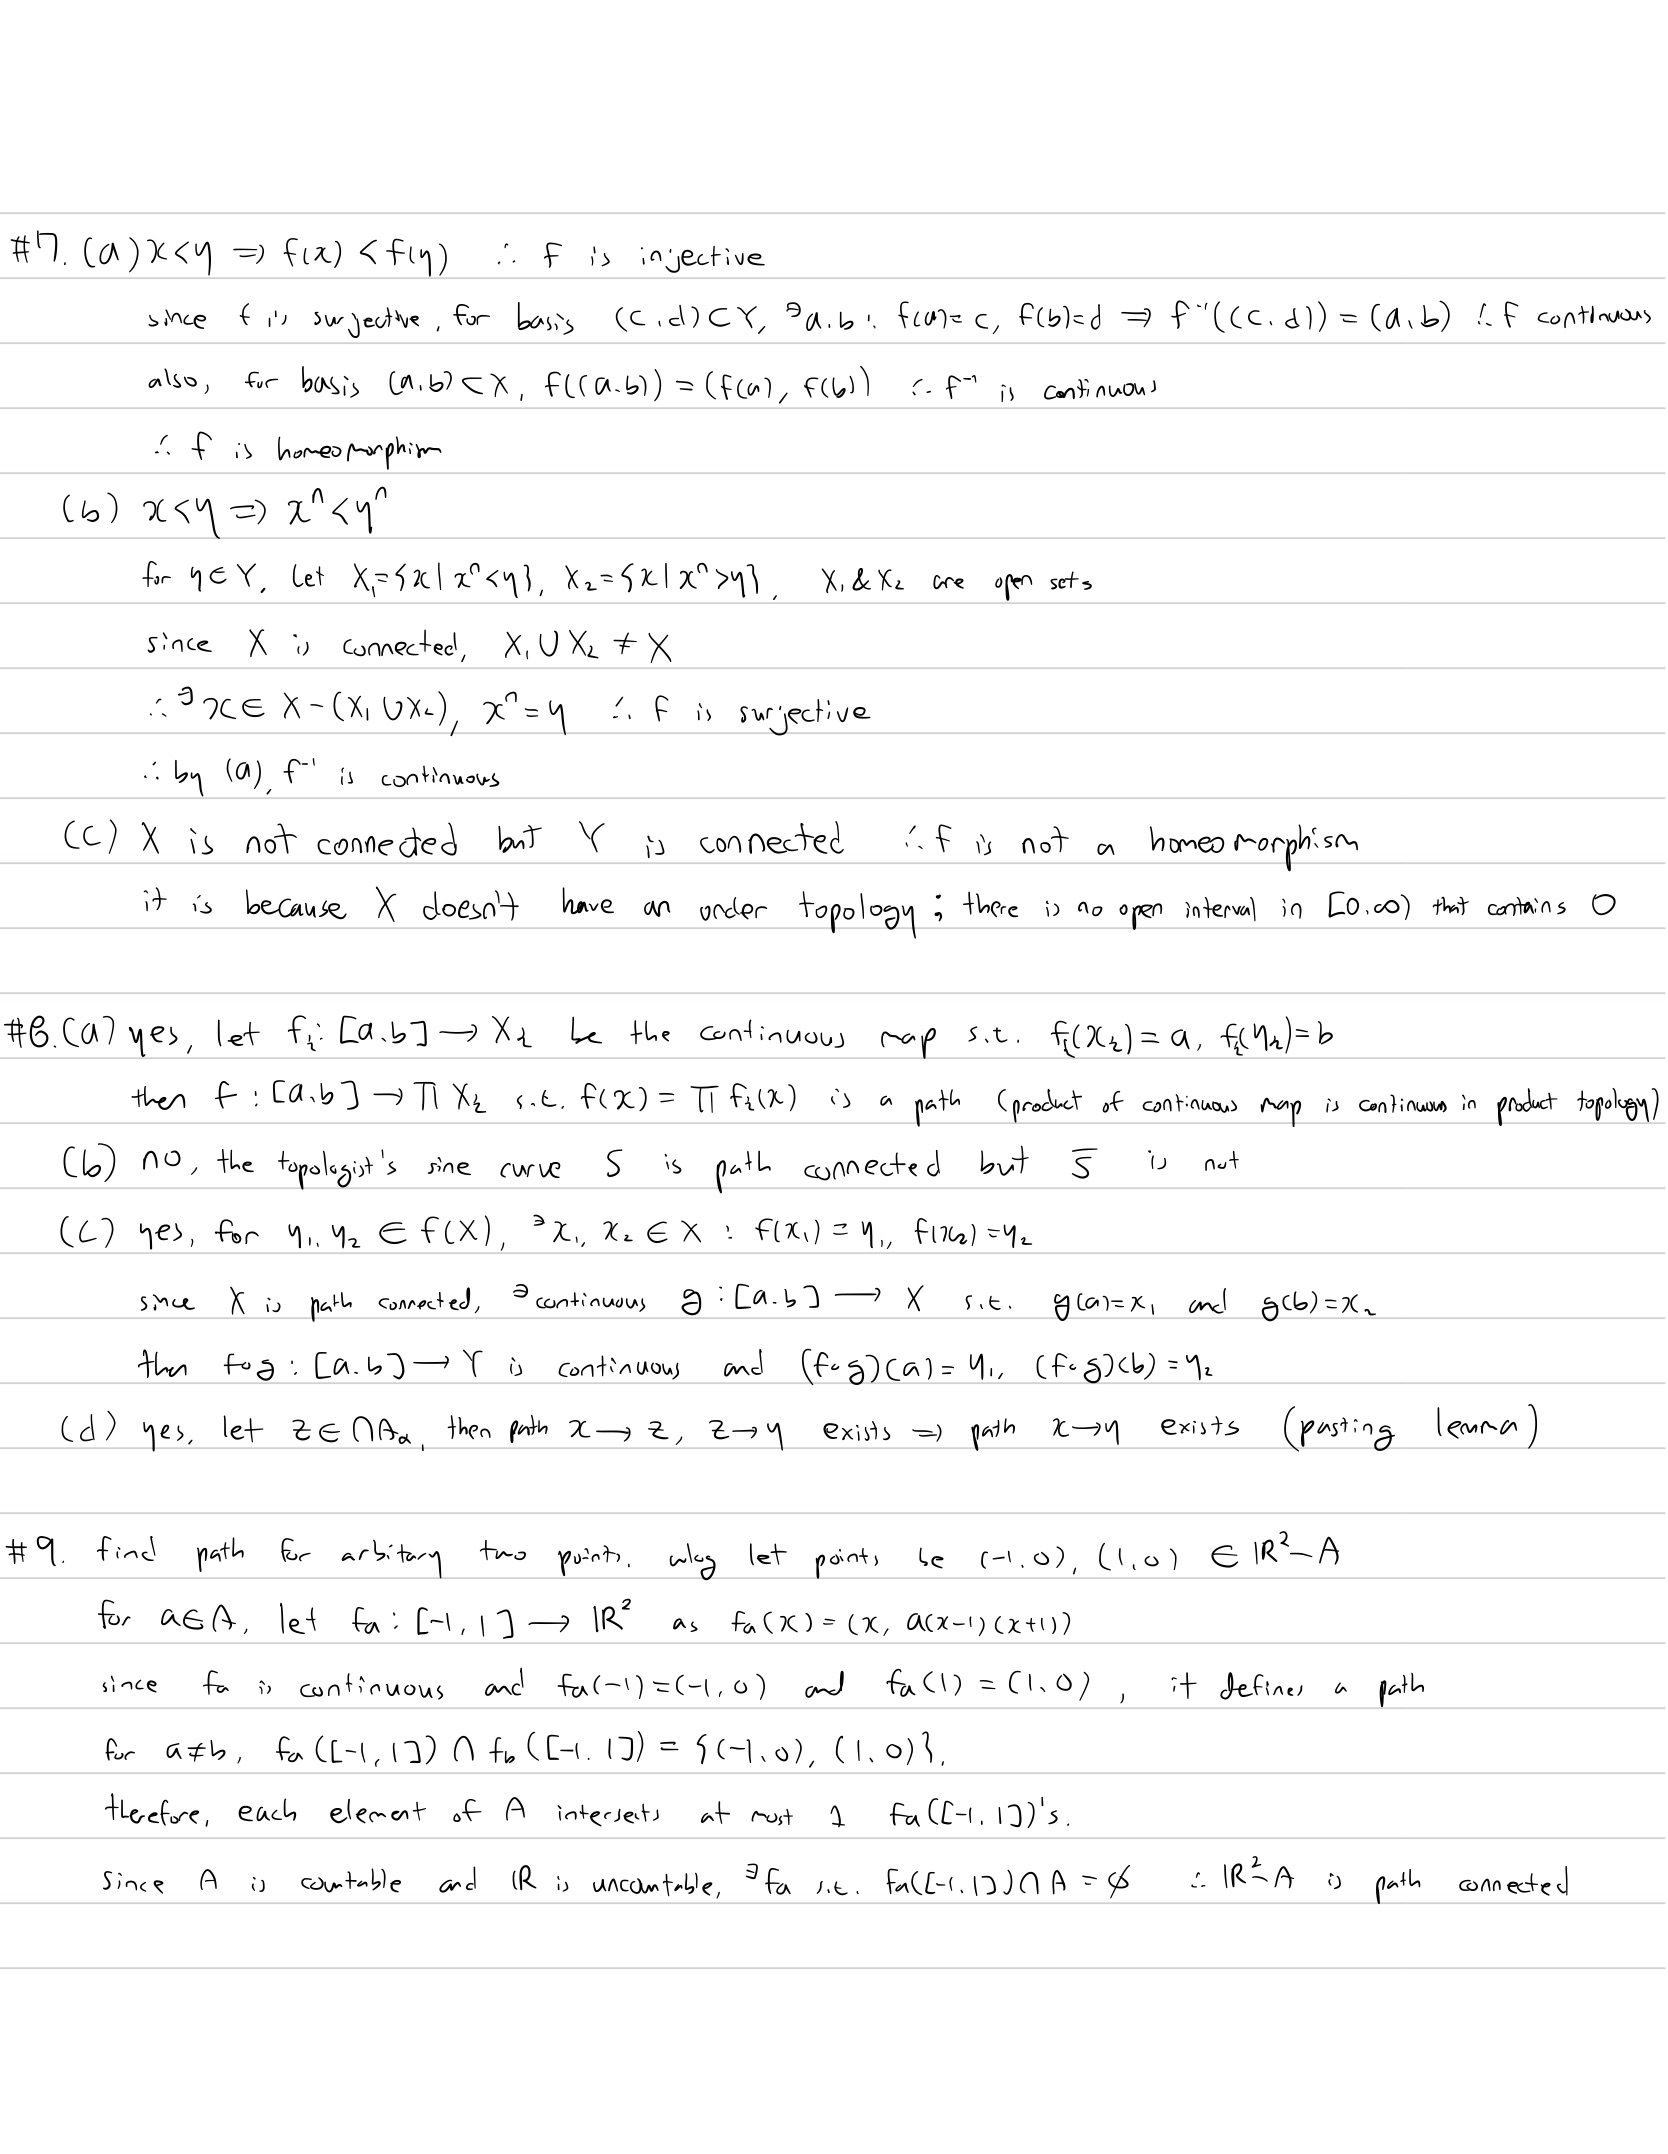 #7. (a) x<y ⇒ f(x) < f(y) ∴ f is injective
since f is surjective, for basis (c,d)⊂Y, ∃a,b : f(a)=c, f(b)=d ⇒ f⁻¹((c,d)) = (a,b) ∴ f continuous
also, for basis (a,b)⊂X, f((a,b)) = (f(a), f(b)) ∴ f⁻¹ is continuous
∴ f is homeomorphism
(b) x<y ⇒ xⁿ<yⁿ
for y∈Y, let X₁={x| xⁿ<y}, X₂={x| xⁿ>y}, X₁ & X₂ are open sets
since X is connected, X₁∪X₂ ≠ X
∴ ∃x∈ X-(X₁∪X₂), xⁿ=y ∴ f is surjective
∴ by (a), f⁻¹ is continuous
(c) X is not connected but Y is connected ∴ f is not a homeomorphism
it is because X doesn't have an order topology ; there is no open interval in [0,∞) that contains 0
#8. (a) yes, let fᵢ: [a,b] → Xᵢ be the continuous map s.t. fᵢ(xᵢ) = a, fᵢ(yᵢ)=b
then f : [a,b] → ΠXᵢ s.t. f(x) = Πfᵢ(x) is a path (product of continuous map is continuous in product topology)
(b) no, the topologist's sine curve S is path connected but S̅ is not
(c) yes, for y₁, y₂ ∈ f(X), ∃x₁, x₂ ∈ X : f(x₁) = y₁, f(x₂) = y₂
since X is path connected, ∃continuous g : [a,b] → X s.t. g(a)=x₁ and g(b)=x₂
then f∘g : [a,b] → Y is continuous and (f∘g)(a) = y₁, (f∘g)(b) = y₂
(d) yes, let z∈∩Aα, then path x→z, z→y exists ⇒ path x→y exists (pasting lemma)
#9. find path for arbitary two points. wlog let points be (-1,0), (1,0) ∈ ℝ²-A
for a∈A, let fa : [-1,1] → ℝ² as fa(x) = (x, a(x-1)(x+1))
since fa is continuous and fa(-1)=(-1,0) and fa(1) = (1,0), it defines a path
for a≠b, fa([-1,1]) ∩ fb([-1,1]) = {(-1,0), (1,0)}.
therefore, each element of A intersects at most 1 fa([-1,1])'s.
since A is countable and ℝ is uncountable, ∃fa s.t. fa([-1,1])∩A = ∅ ∴ ℝ²-A is path connected